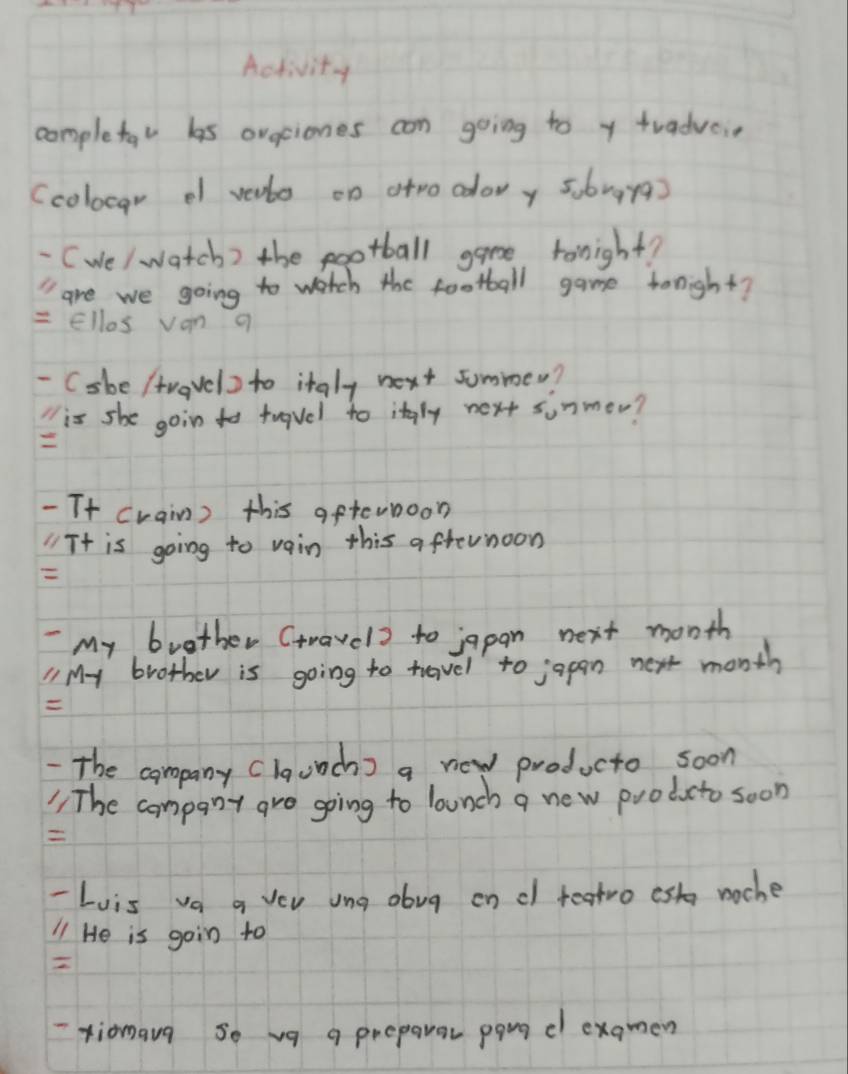 Activity
completar las oraciones con going to y traducir
(colocar el verbo en otro color y subraya)
- (we/watch) the football game tonight?
" are we going to watch the football game tonight?
= Ellos van a
- (she/travel) to italy next summer?
" is she goin to travel to italy next sunmer?
=
- It (rain) this afternoon
" It is going to rain this afternoon
=
- My brother (travel) to japan next month
" My brother is going to travel to japan next month
=
- The company (launch) a new producto soon
" The company are going to launch a new producto soon
=
- Luis va a ver una obra en el teatro esta noche
" He is goin to
=
- xiomara se va a preparar para el examen